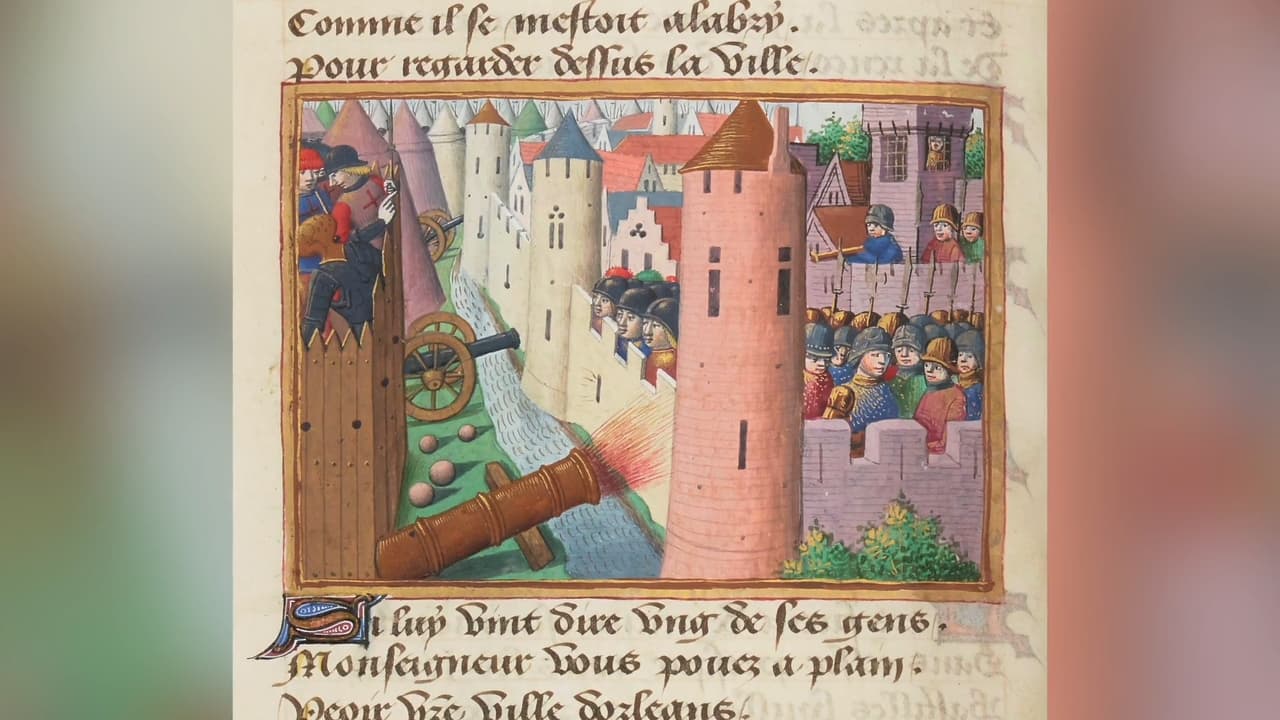 Comme il se mestoit alabry.
Pour regarder dessus la ville.
Si luy vint dire vng de ses gens.
Monseigneur vous pouez a plain.
Veoir vre ville dorleans.